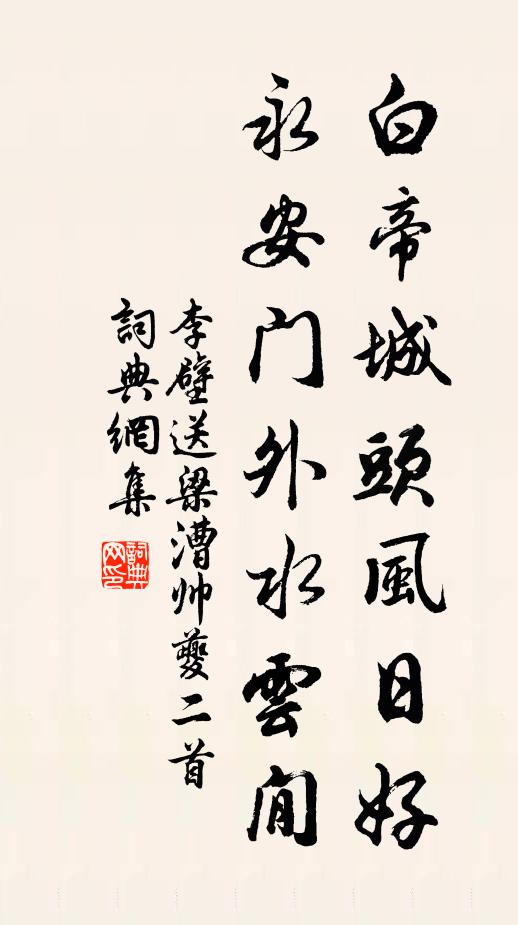 白帝城頭風日好
永安門外水雲閒
李壁送梁漕帅夔二首
詞典網集
詞典網印